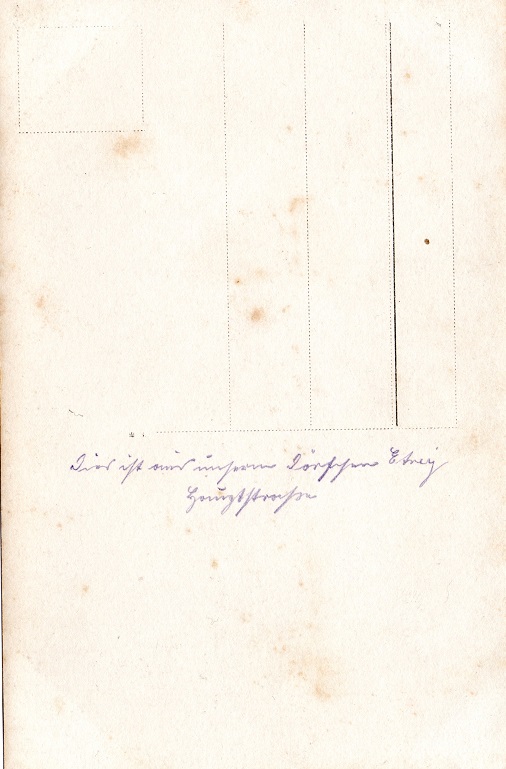 Dies ist aus unserm Dörfchen Etray
Hauptstraße